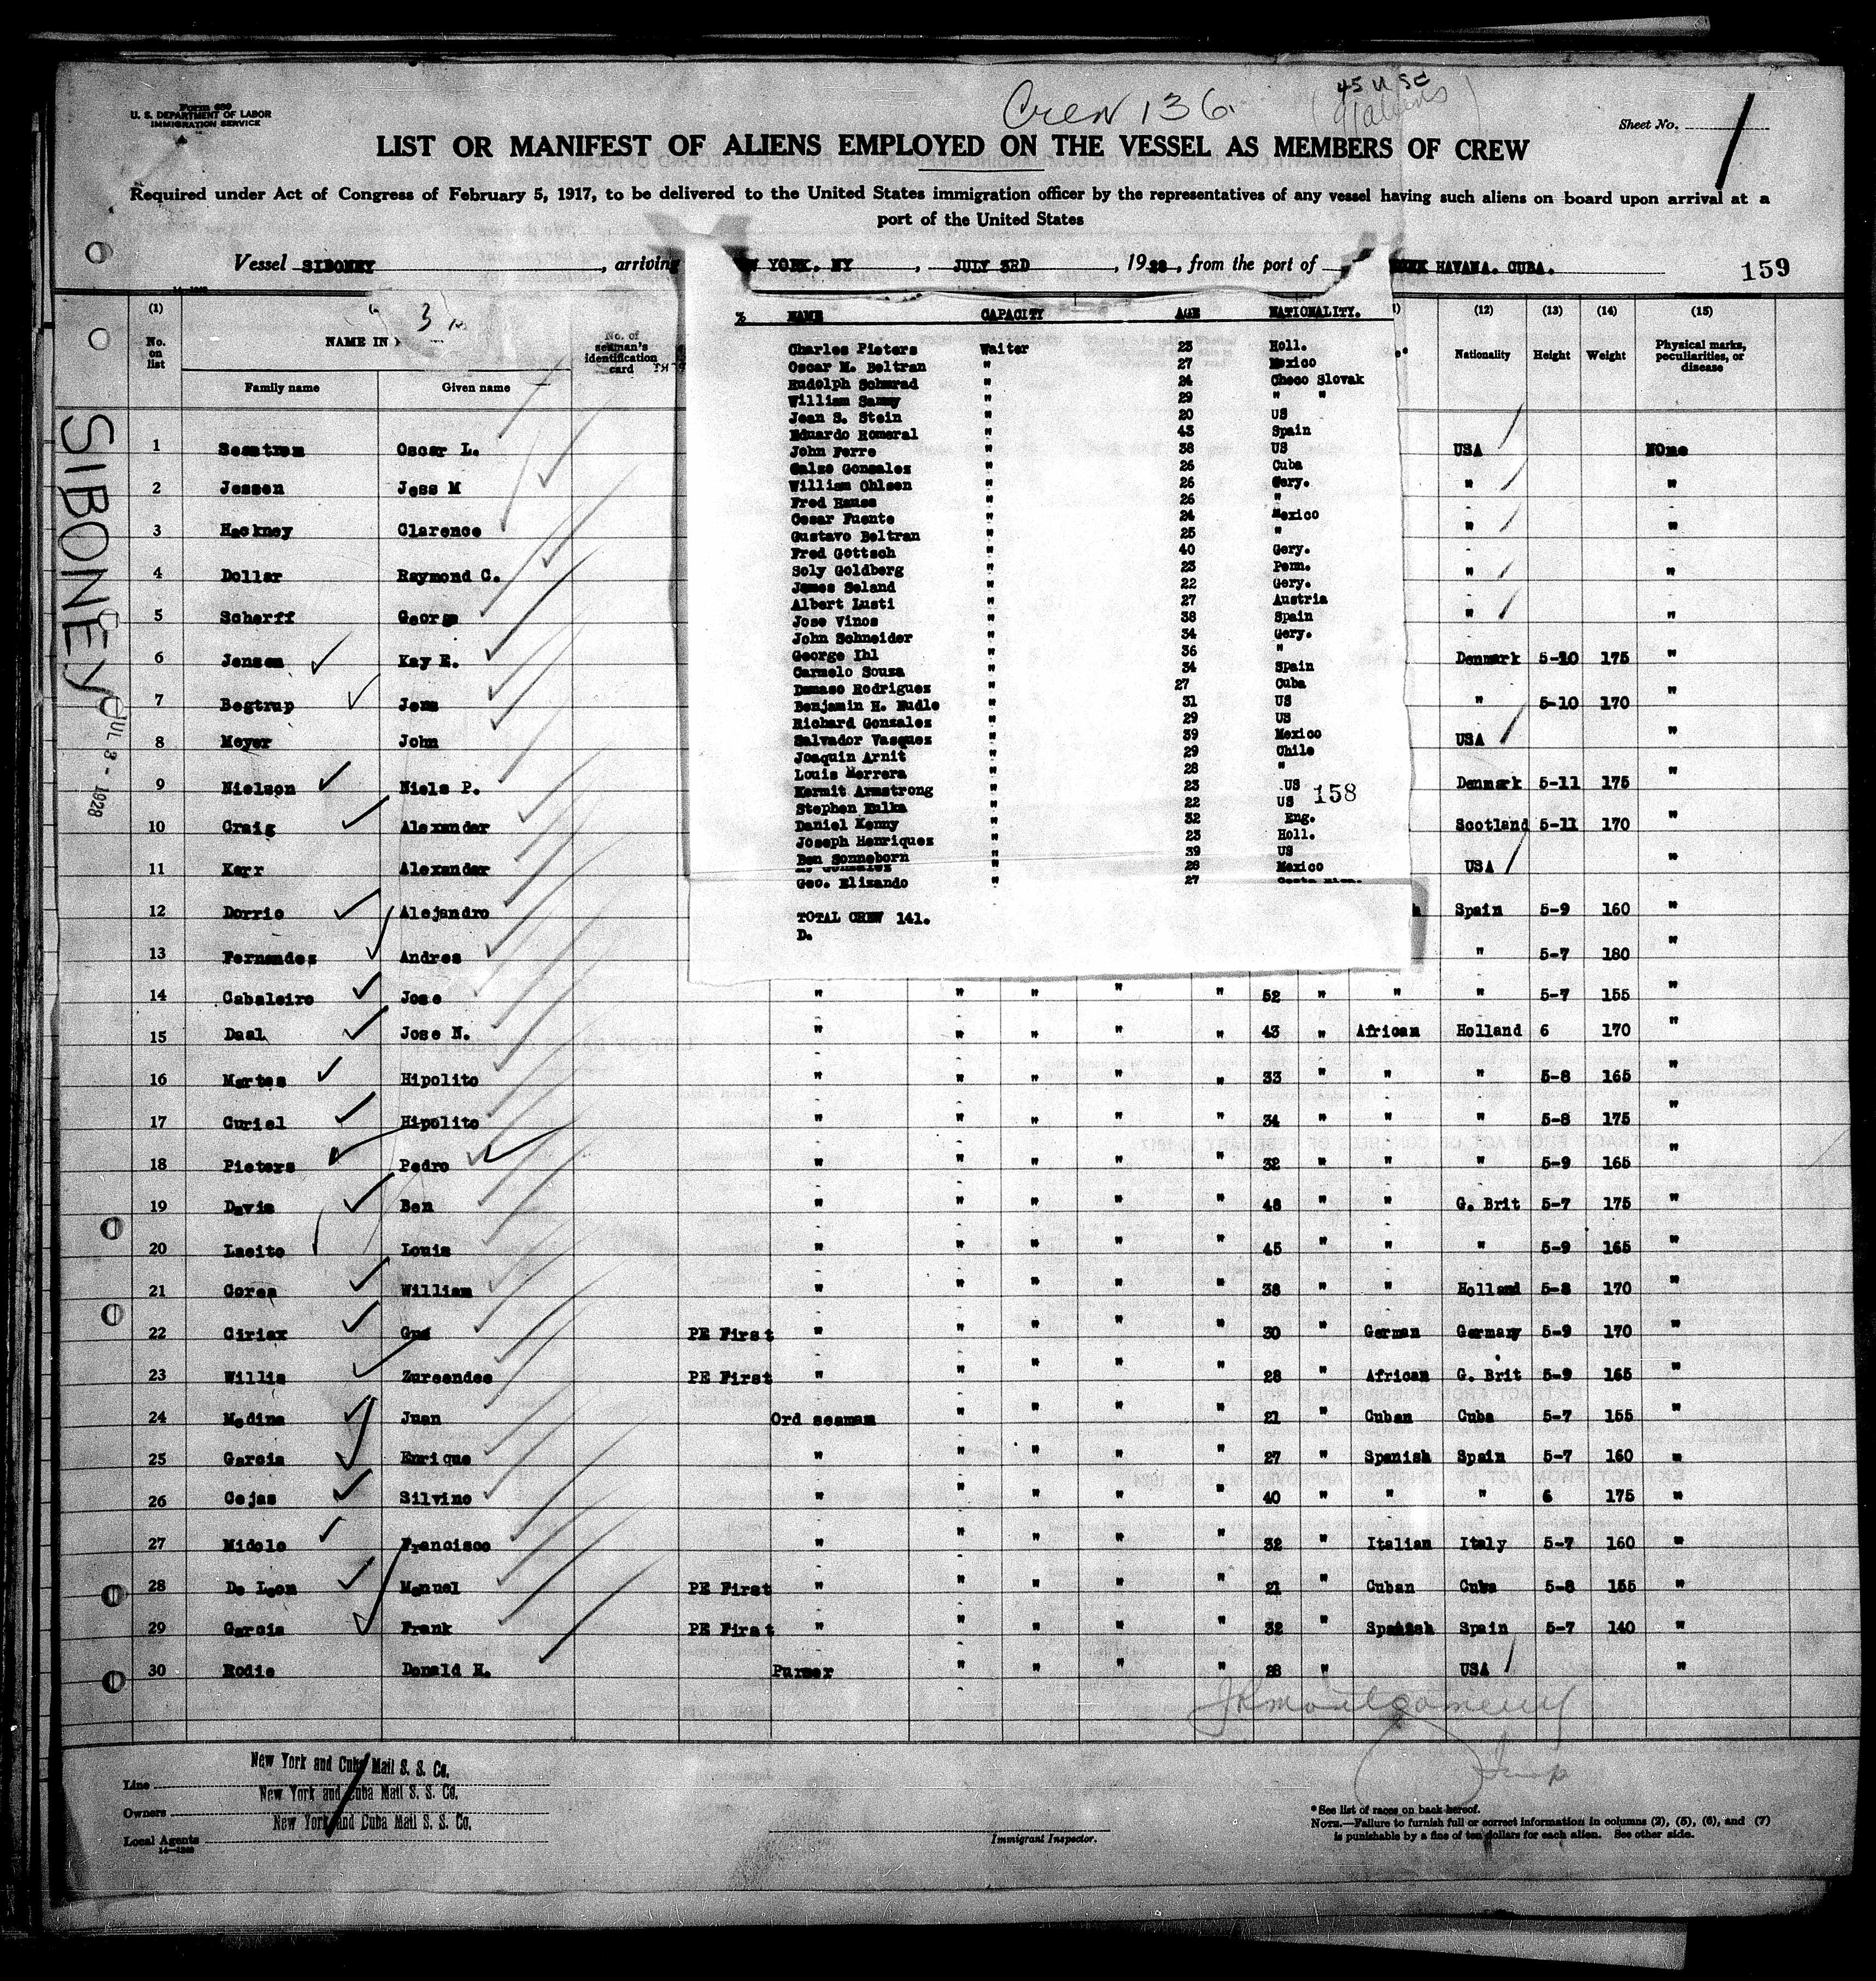 Form 680
U. S. DEPARTMENT OF LABOR
IMMIGRATION SERVICE
Crew 136
45 U SC
Sheet No. 1
LIST OR MANIFEST OF ALIENS EMPLOYED ON THE VESSEL AS MEMBERS OF CREW
Required under Act of Congress of February 5, 1917, to be delivered to the United States immigration officer by the representatives of any vessel having such aliens on board upon arrival at a
port of the United States
Vessel SIBONEY , arriving YORK. NY , JULY 3RD , 1928 , from the port of HAVANA. CUBA.
159
(1) (12) (13) (14) (15)
No. on list NAME IN No. of seaman's identification card Nationality Height Weight Physical marks, peculiarities, or disease
Family name Given name
3
SIBONEY
JUL 3 - 1928
% NAME CAPACITY AGE NATIONALITY.
Charles Pieters Waiter 23 Holl.
Oscar M. Beltran " 27 Mexico
Rudolph Schwrad " 24 Checo Slovak
William " 29 " "
Jean S. Stein " 20 US
Eduardo Romeral " 43 Spain
John Ferro " 38 US
Gonzalez " 26 Cuba
William Ohlsen " 26 Gery.
Fred Hauss " 26 "
Cesar Fuente " 24 Mexico
Gustavo Beltran " 25 "
Fred Gottsch " 40 Gery.
Soly Goldberg " 23 Penn.
James Seland " 22 Gery.
Albert Lusti " 27 Austria
Jose Vinos " 38 Spain
John Schneider " 34 Gery.
George Ihl " 36 "
Carmelo Souza " 34 Spain
Damaso Rodriguez " 27 Cuba
Benjamin H. Nudle " 31 US
Richard Gonzalez " 29 US
Salvador Vasquez " 39 Mexico
Joaquin Arnit " 29 Chile
Louis Herrera " 28 "
Kermit Armstrong " 23 US
158
Stephen Hulka " 22 US
Daniel Kenny " 32 Eng.
Joseph Henriquez " 23 Holl.
Ben Sonneborn " 39 US
Gonzalez " 28 Mexico
Geo. Elizando " 27 Costa Rica.
TOTAL CREW 141.
D.
1 Seastrom Oscar L. USA NOne
2 Jessen Jess M " "
3 Hackney Clarence " "
4 Dollar Raymond C. " "
5 Scherff George " "
6 Jensen Kay E. Denmark 5-10 175 "
7 Begtrup Jens " 5-10 170 "
8 Meyer John USA "
9 Nielson Niels P. Denmark 5-11 175 "
10 Craig Alexander Scotland 5-11 170 "
11 Kerr Alexander USA "
12 Dorrio Alejandro Spain 5-9 160 "
13 Fernandez Andres " 5-7 180 "
14 Cabaleiro Jose " " " " " 52 " " " 5-7 155 "
15 Daal Jose N. " " " " " 43 " African Holland 6 170 "
16 Martes Hipolito " " " " " 33 " " " 5-8 165 "
17 Curiel Hipolito " " " " " 34 " " " 5-8 175 "
18 Pieters Pedro " " " " " 32 " " " 5-9 165 "
19 Davis Ben " " " " " 48 " " G. Brit 5-7 175 "
20 Laeito Louis " " " " " 45 " " " 5-9 165 "
21 Corea William " " " " " 38 " " Holland 5-8 170 "
22 Ciriax Gus PE First " " " " " 30 " German Germany 5-9 170 "
23 Willis Zureendee PE First " " " " " 28 " African G. Brit 5-9 165 "
24 Medina Juan Ord seaman " " " " 21 " Cuban Cuba 5-7 155 "
25 Garcia Enrique " " " " " 27 " Spanish Spain 5-7 160 "
26 Cejas Silvino " " " " " 40 " " " 6 175 "
27 Midolo Francisco " " " " " 32 " Italian Italy 5-7 160 "
28 De Leon Manuel PE First " " " " " 21 " Cuban Cuba 5-8 155 "
29 Garcia Frank PE First " " " " " 32 " Spanish Spain 5-7 140 "
30 Rodie Donald H. Purser " " " " 28 " USA "
JRMontgomery
Insp
Line New York and Cuba Mail S. S. Co.
Owners New York and Cuba Mail S. S. Co.
Local Agents New York and Cuba Mail S. S. Co.
Immigrant Inspector.
* See list of races on back hereof.
NOTE.—Failure to furnish full or correct information in columns (2), (5), (6), and (7)
is punishable by a fine of ten dollars for each alien. See other side.